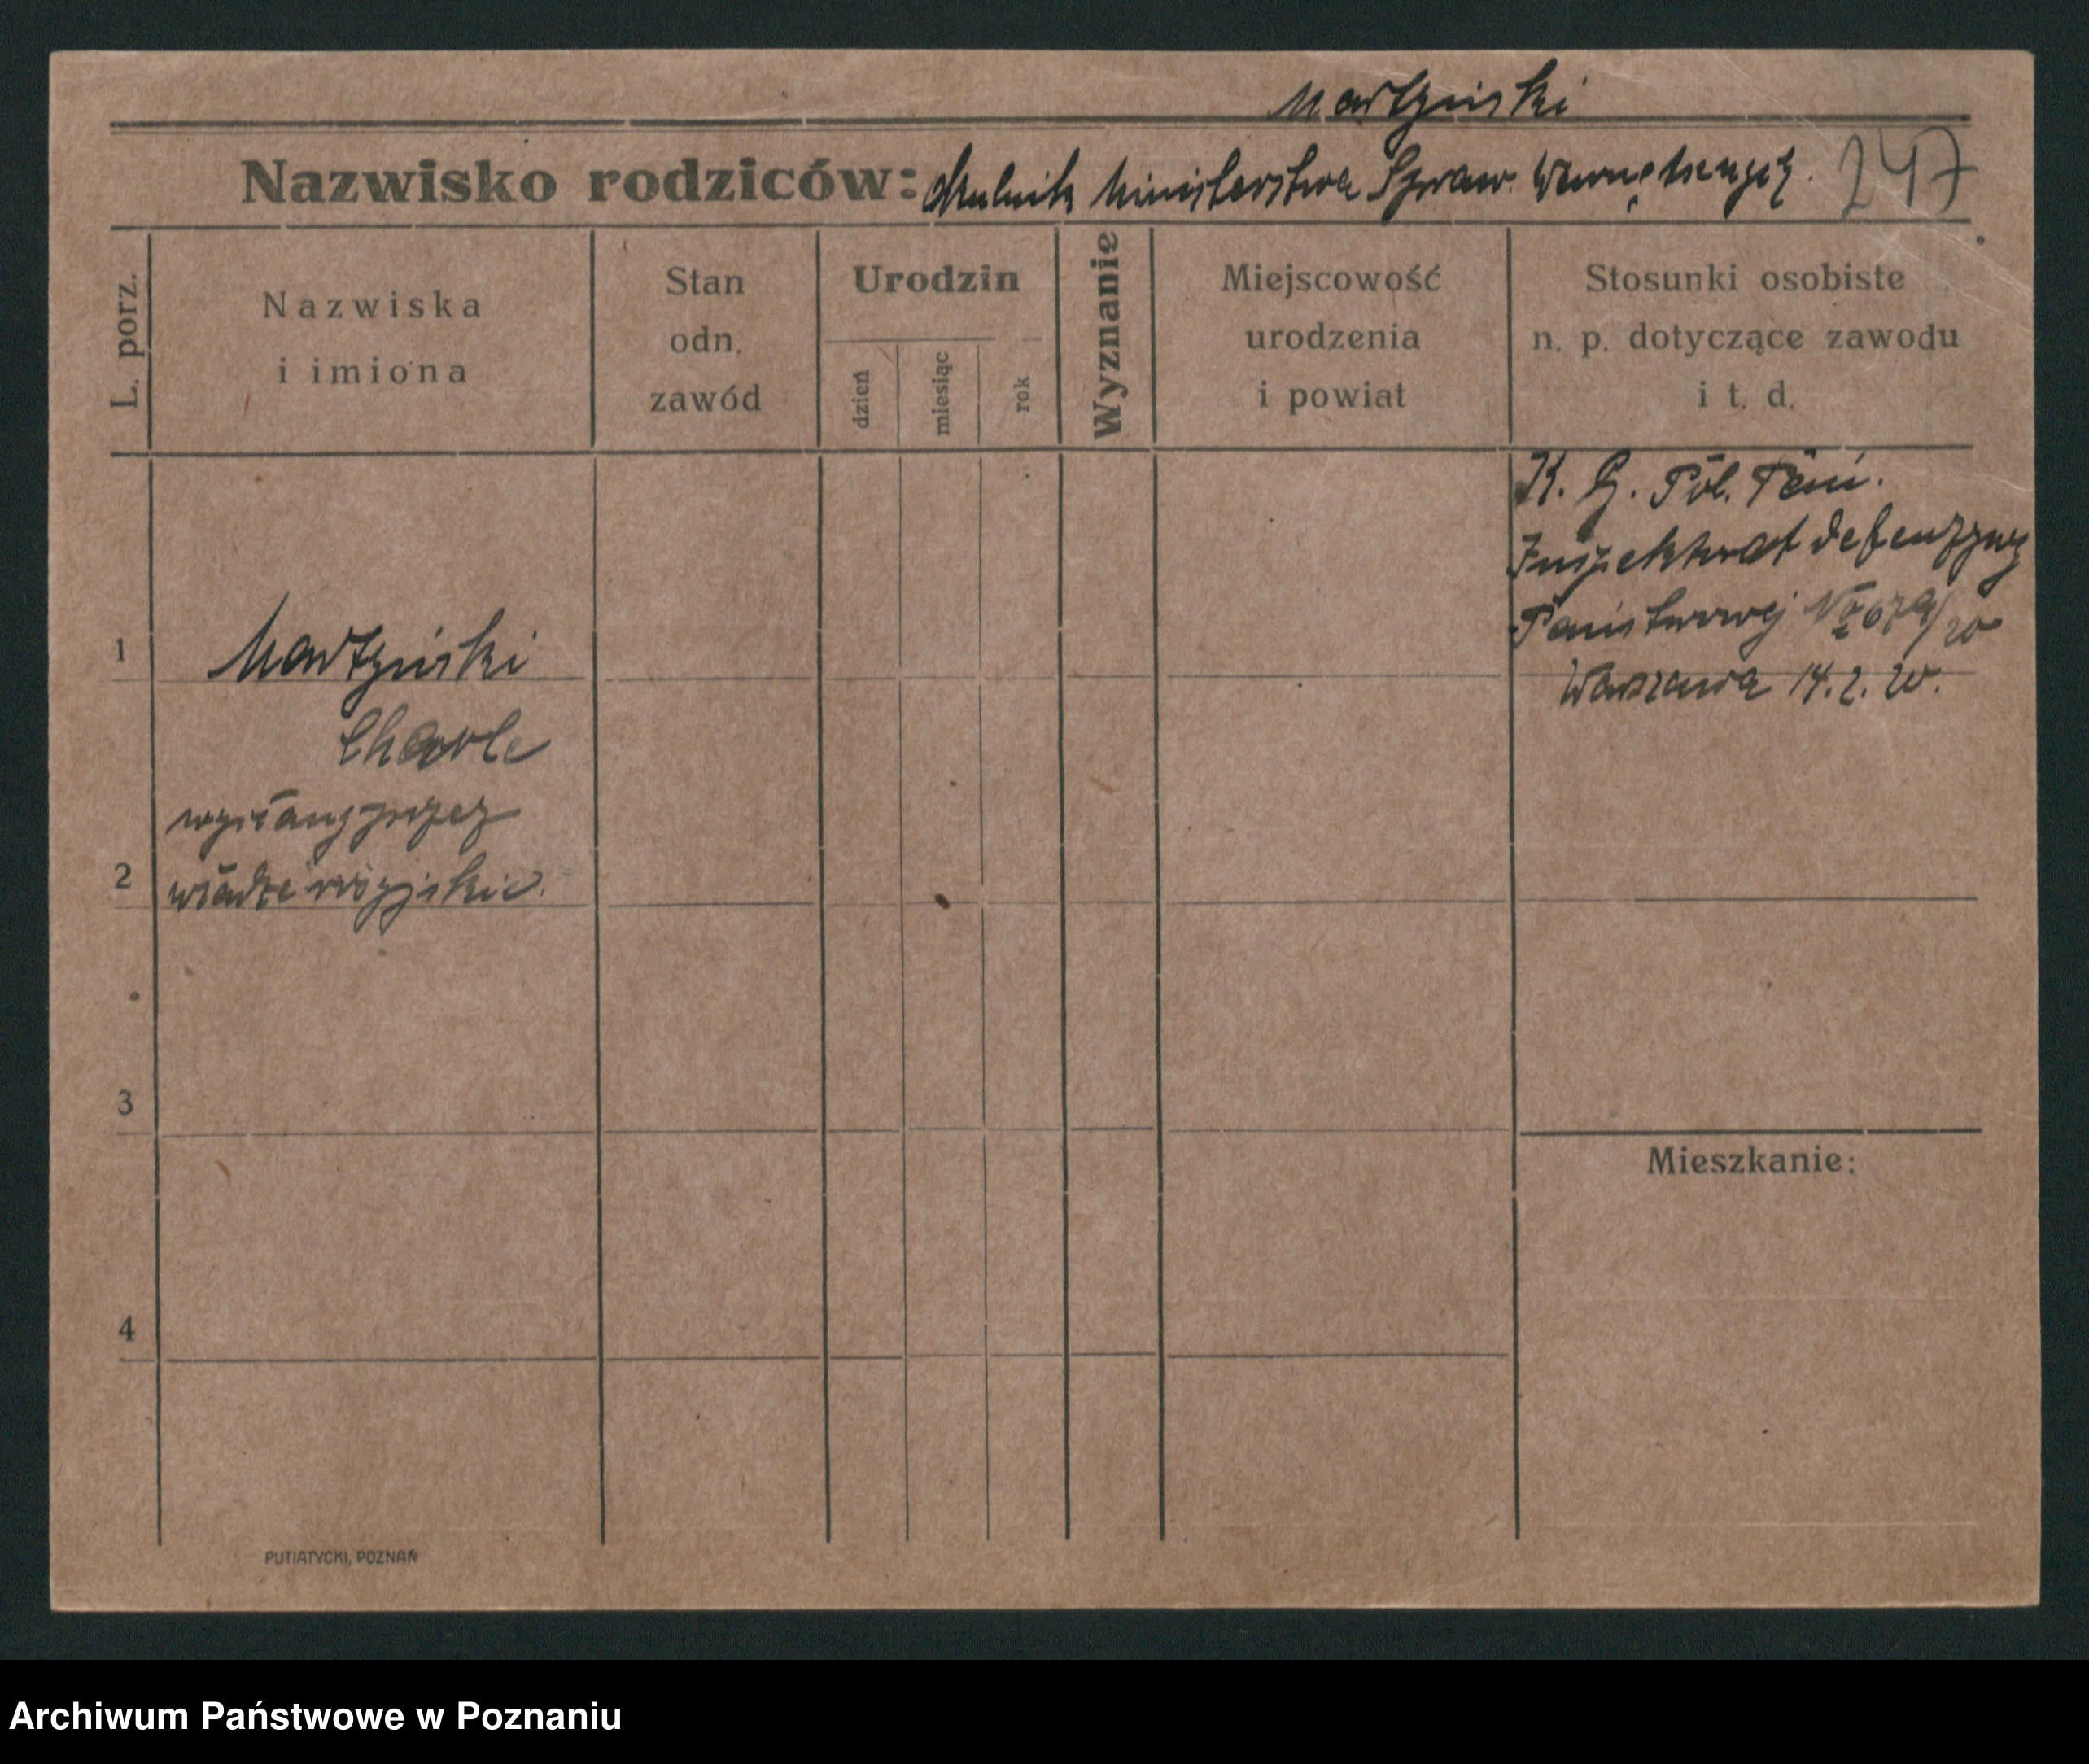 Martyński
Nazwisko rodziców: Okólnik Ministerstwa Spraw Wewnętrznych. 247
L. porz.
Nazwiska
i imiona
Stan
odn.
zawód
Urodzin
dzień
miesiąc
rok
Wyznanie
Miejscowość
urodzenia
i powiat
Stosunki osobiste
n. p. dotyczące zawodu
i t. d.
K. G. Pol. Pań.
Inspektorat defenzywy
Państwowej
Warszawa 14. 2. 20.
1
Martyński
Charle
wysłany przez
2
władze rosyjskie.
3
Mieszkanie:
4
PUTIATYCKI, POZNAŃ
Archiwum Państwowe w Poznaniu